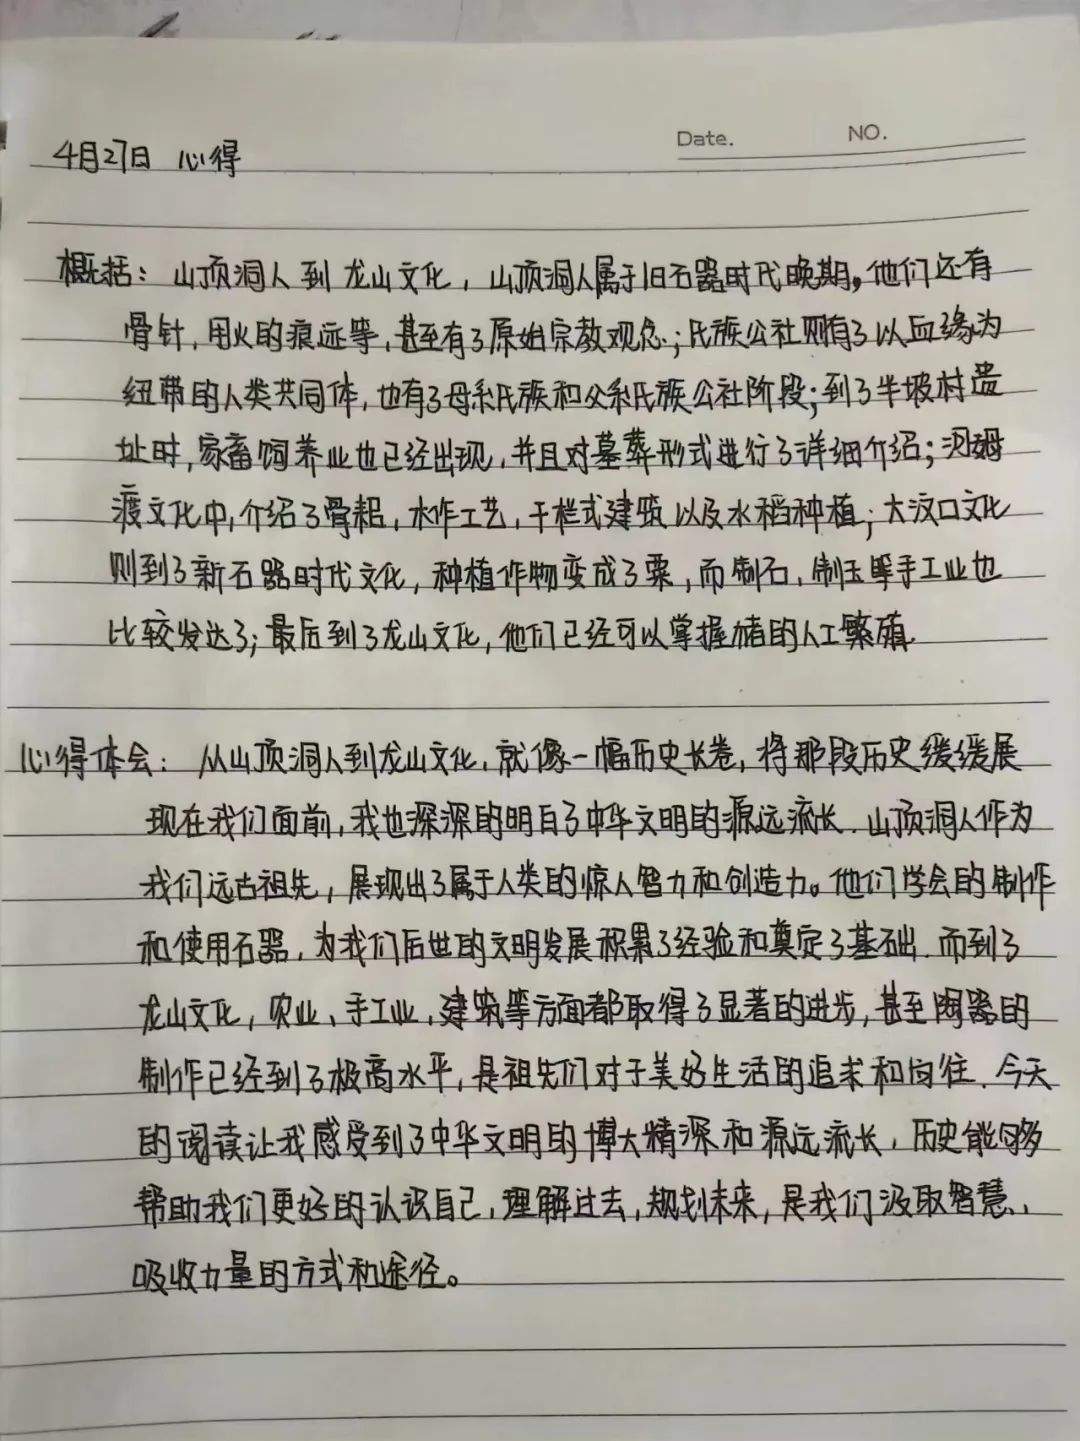 Date.    NO.
4月27日 心得
概括：山顶洞人到龙山文化，山顶洞人属于旧石器时代晚期，他们还有
骨针，用火的痕迹等，甚至有了原始宗教观念；氏族公社则有了以血缘为
纽带的人类共同体，也有了母系氏族和父系氏族公社阶段；到了半坡村遗
址时，家畜饲养业也已经出现，并且对墓葬形式进行了详细介绍；河姆
渡文化中，介绍了骨耜，木作工艺，干栏式建筑以及水稻种植；大汶口文化
则到了新石器时代文化，种植作物变成了粟，而制石，制玉等手工业也
比较发达了；最后到了龙山文化，他们已经可以掌握猪的人工繁殖
心得体会：从山顶洞人到龙山文化，就像一幅历史长卷，将那段历史缓缓展
现在我们面前，我也深深的明白了中华文明的源远流长．山顶洞人作为
我们远古祖先，展现出了属于人类的惊人智力和创造力。他们学会的制作
和使用石器，为我们后世的文明发展积累了经验和奠定了基础．而到了
龙山文化，农业、手工业、建筑等方面都取得了显著的进步，甚至陶器的
制作已经到了极高水平，是祖先们对于美好生活的追求和向往．今天
的阅读让我感受到了中华文明的博大精深和源远流长，历史能够
帮助我们更好的认识自己，理解过去，规划未来，是我们汲取智慧、
吸收力量的方式和途径。